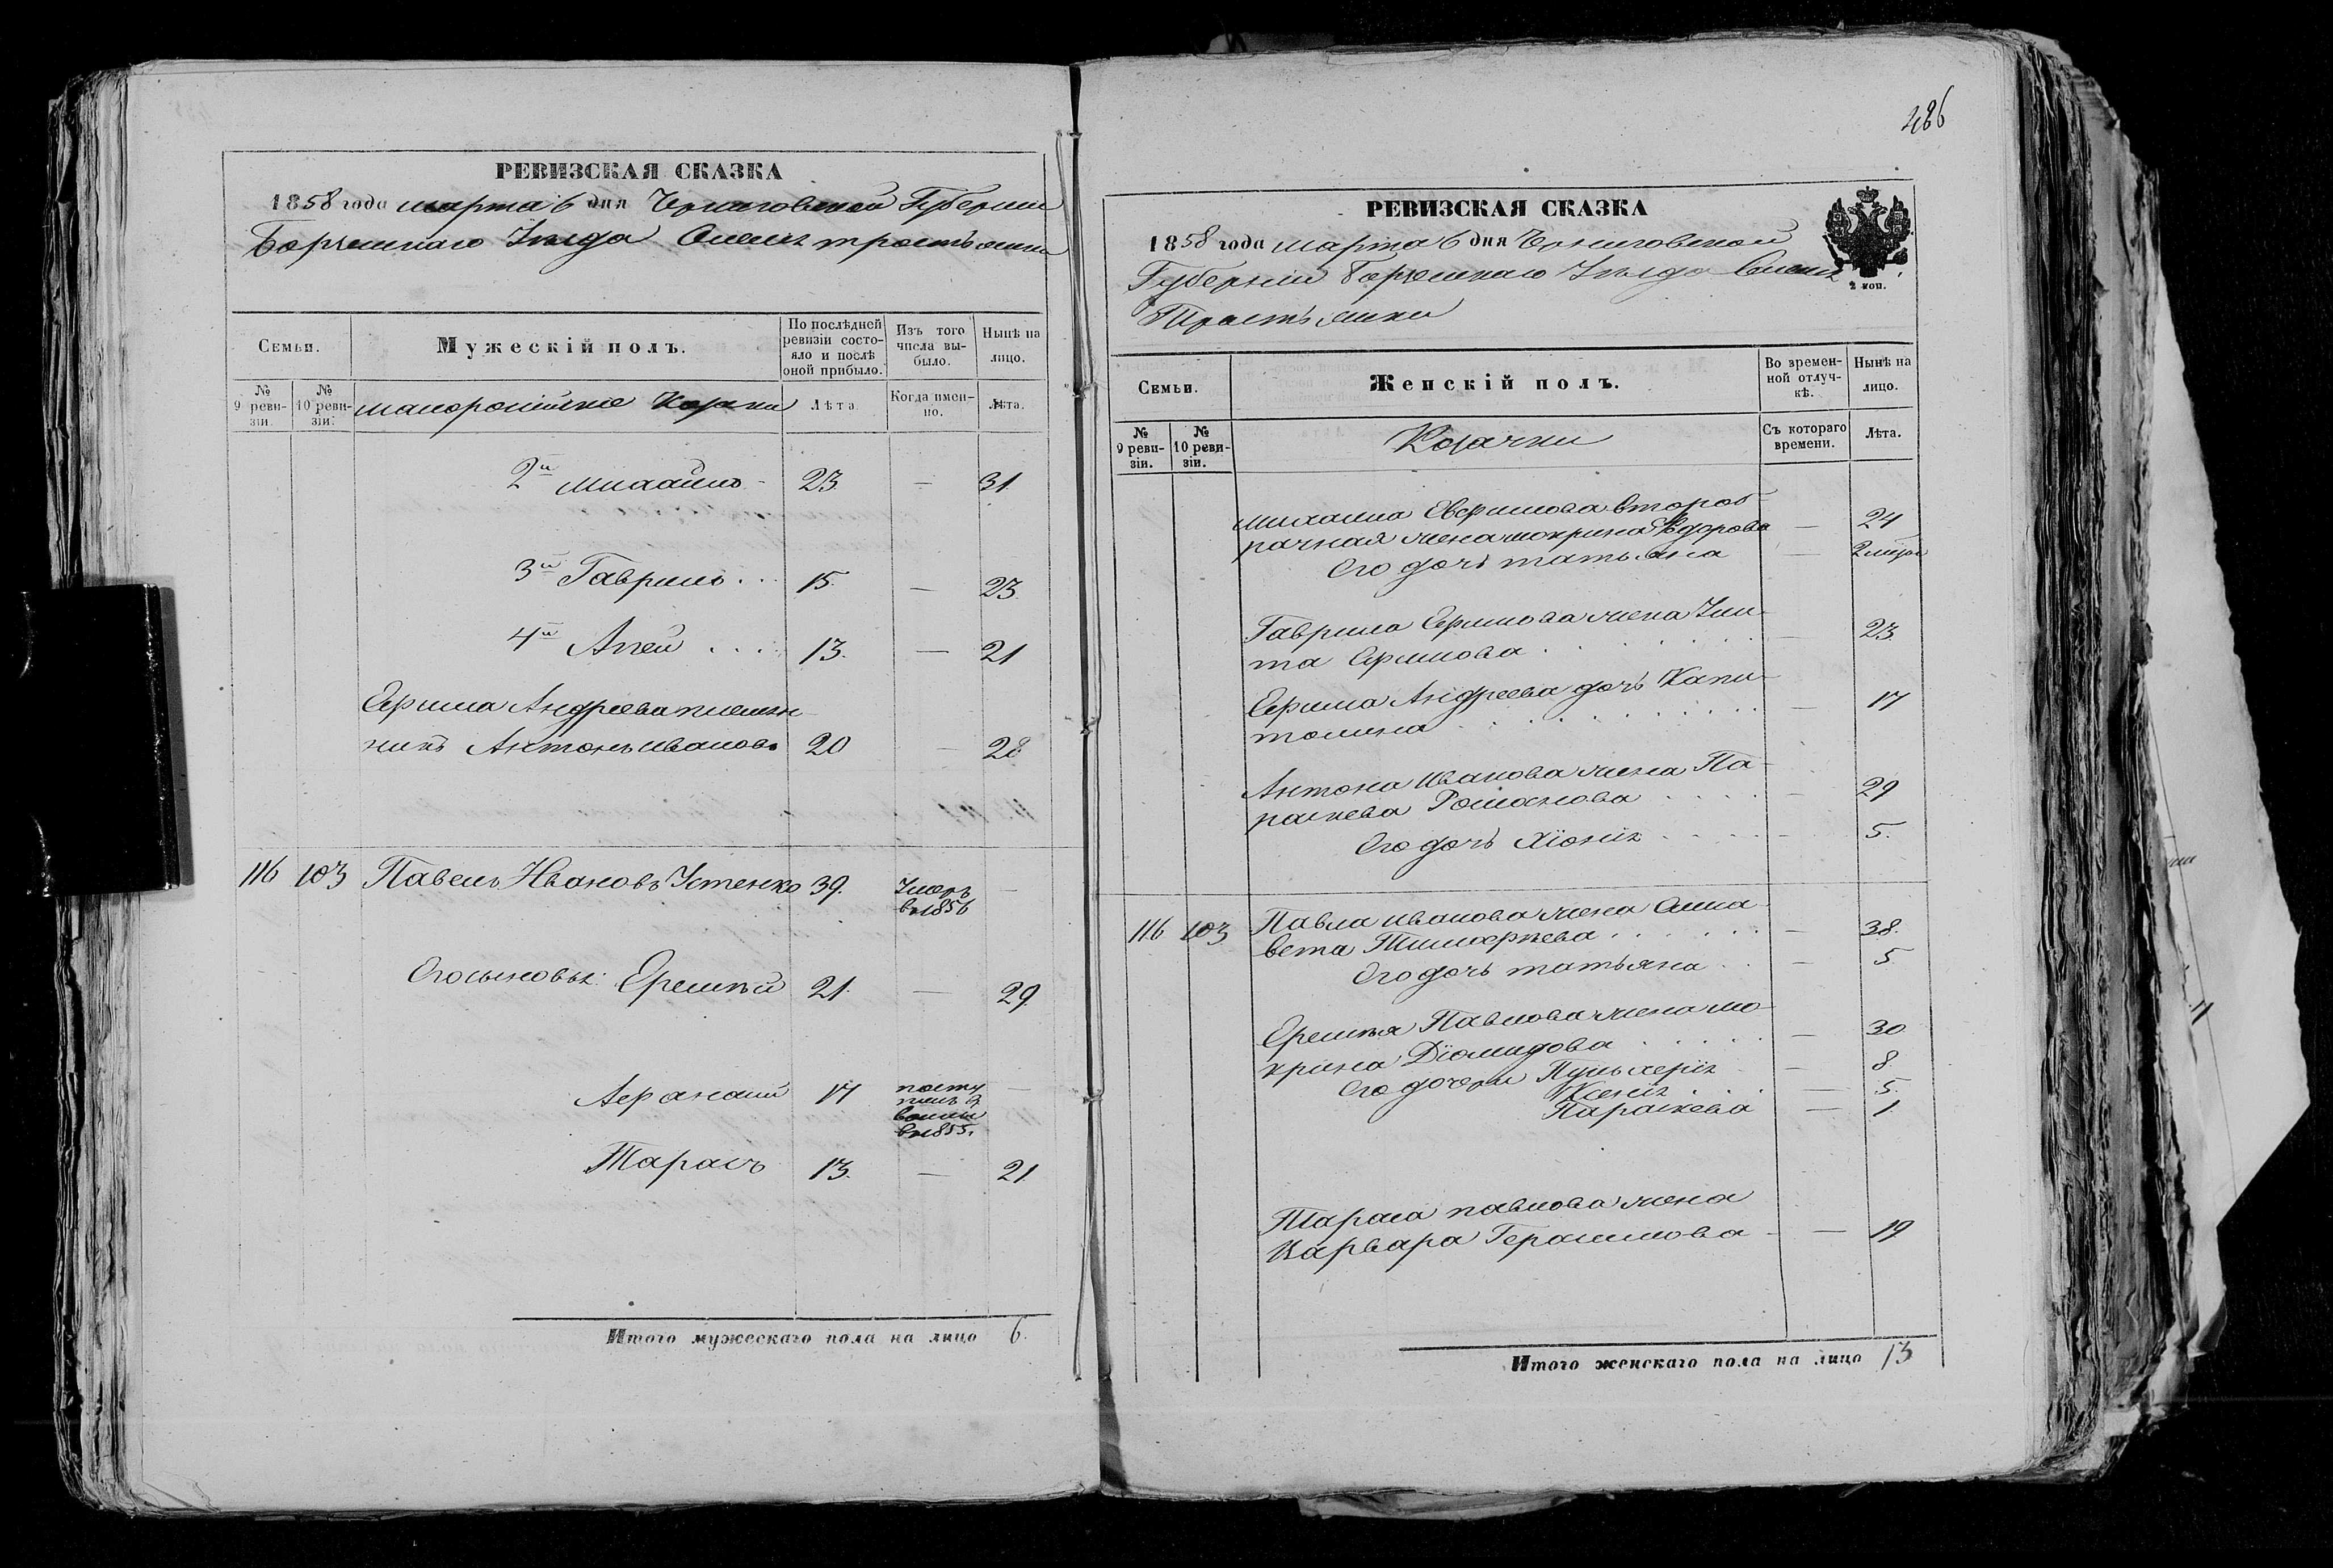 РЕВИЗСКАЯ СКАЗКА
1858 года марта 6 дня Черниговской Губернии
Борзенскаго Уѣзда Села Тростянки
Семьи.
Мужескій полъ.
По послѣдней ревизіи состояло и послѣ оной прибыло.
Изъ того числа выбыло.
Нынѣ на лицо.
№ 9 ревизіи.
№ 10 ревизіи.
малороссійскіе Козаки
Лѣта
Когда именно.
Лѣта.
2й Михайло - 23. — 31
3й Гаврило . . . 15. — 23.
4й Агей . . . . 13. — 21
Ефима Андреева племян-
никъ Антонъ Ивановъ 20 — 28
116 103 Павелъ Ивановъ Устенко 39. Умеръ —
в 1856
Его сыновья: Еремѣй 21. — 29.
Афанасій 17 посту —
пилъ в
в 1855.
Тарасъ 13. — 21.
Итого мужескаго пола на лицо 6.
486
РЕВИЗСКАЯ СКАЗКА
1858 года марта 6 дня Черниговской
Губерніи Борзенскаго Уѣзда Села
Тростянки
2 коп.
Семьи.
Женскій полъ.
Во временной отлучкѣ.
Нынѣ на лицо.
№ 9 ревизіи.
№ 10 ревизіи.
Козачки
Съ котораго времени.
Лѣта.
Михаила Ефимова второб-
рачная жена Мокрина Федорова — 24
Его дочь Татьяна — 2 мѣсяц
Гаврила Ефимова жена Ули-
та Ефимова . . . . . . — 23.
Ефима Андреева дочь Капи-
толина . . . . . . . . — 17
Антона Иванова жена Па-
раскева Романова . . . . — 29
Его дочь Хіонія . . . . — 5.
116 103 Павла Иванова жена Елиса-
вета Тимофеева . . . . . — 38.
Его дочь Татьяна . . — 5
Еремѣя Павлова жена Мо-
крина Діомидова . . . . . — 30
Его дочери Пульхерія — 8.
Ксенія . . . — 5.
Параскева — 1.
Тараса Павлова жена
Варвара Герасимова - — 19
Итого женскаго пола на лицо 13